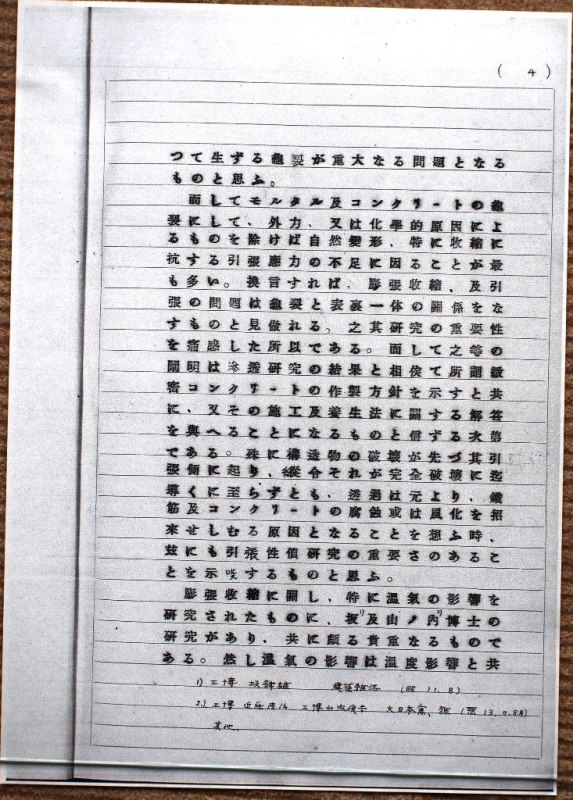 ( 4 )
つて生ずる龜裂が重大なる問題となる
ものと思ふ。
而してモルタル及コンクリートの龜
裂にして、外力、又は化學的原因によ
るものを除けば自然變形、特に收縮に
抗する引張應力の不足に因ることが最
も多い。換言すれば、膨張收縮、及引
張の問題は龜裂と表裏一体の關係をな
すものと見做れる。之其研究の重要性
を痛感した所以である。而して之等の
闡明は滲透研究の結果と相俟て所謂緻
密コンクリートの作製方針を示すと共
に、又その施工及養生法に關する解答
を與へることになるものと信ずる次第
である。殊に構造物の破壞が先づ其引
張側に起り、縱令それが完全破壞に迄
導くに至らずとも、透過は元より、鐵
筋及コンクリートの腐蝕或は風化を招
來せしむる原因となることを想ふ時、
玆にも引張性値研究の重要さのあるこ
とを示唆するものと思ふ。
膨張收縮に關し、特に溫氣の影響を
研究されたものに、坂¹⁾及山ノ內²⁾博士の
研究があり、共に頗る貴重なるもので
ある。然し溫氣の影響は溫度影響と共
1) 工博 坂靜雄 建築雜誌 (昭 11. 8)
2) 工博 近藤 工博 山 大日本窯、雜 (昭 13.
其他、